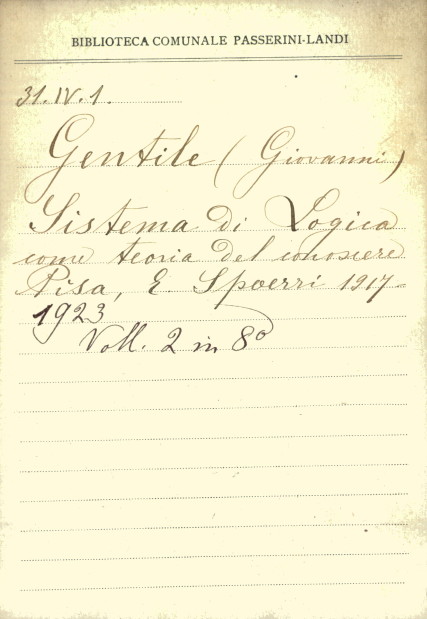 BIBLIOTECA COMUNALE PASSERINI-LANDI
31.IV.1.
Gentile (Giovanni)
Sistema di Logica
come teoria del conoscere
Pisa, E. Spoerri 1917-
1923
Voll. 2 in 8°